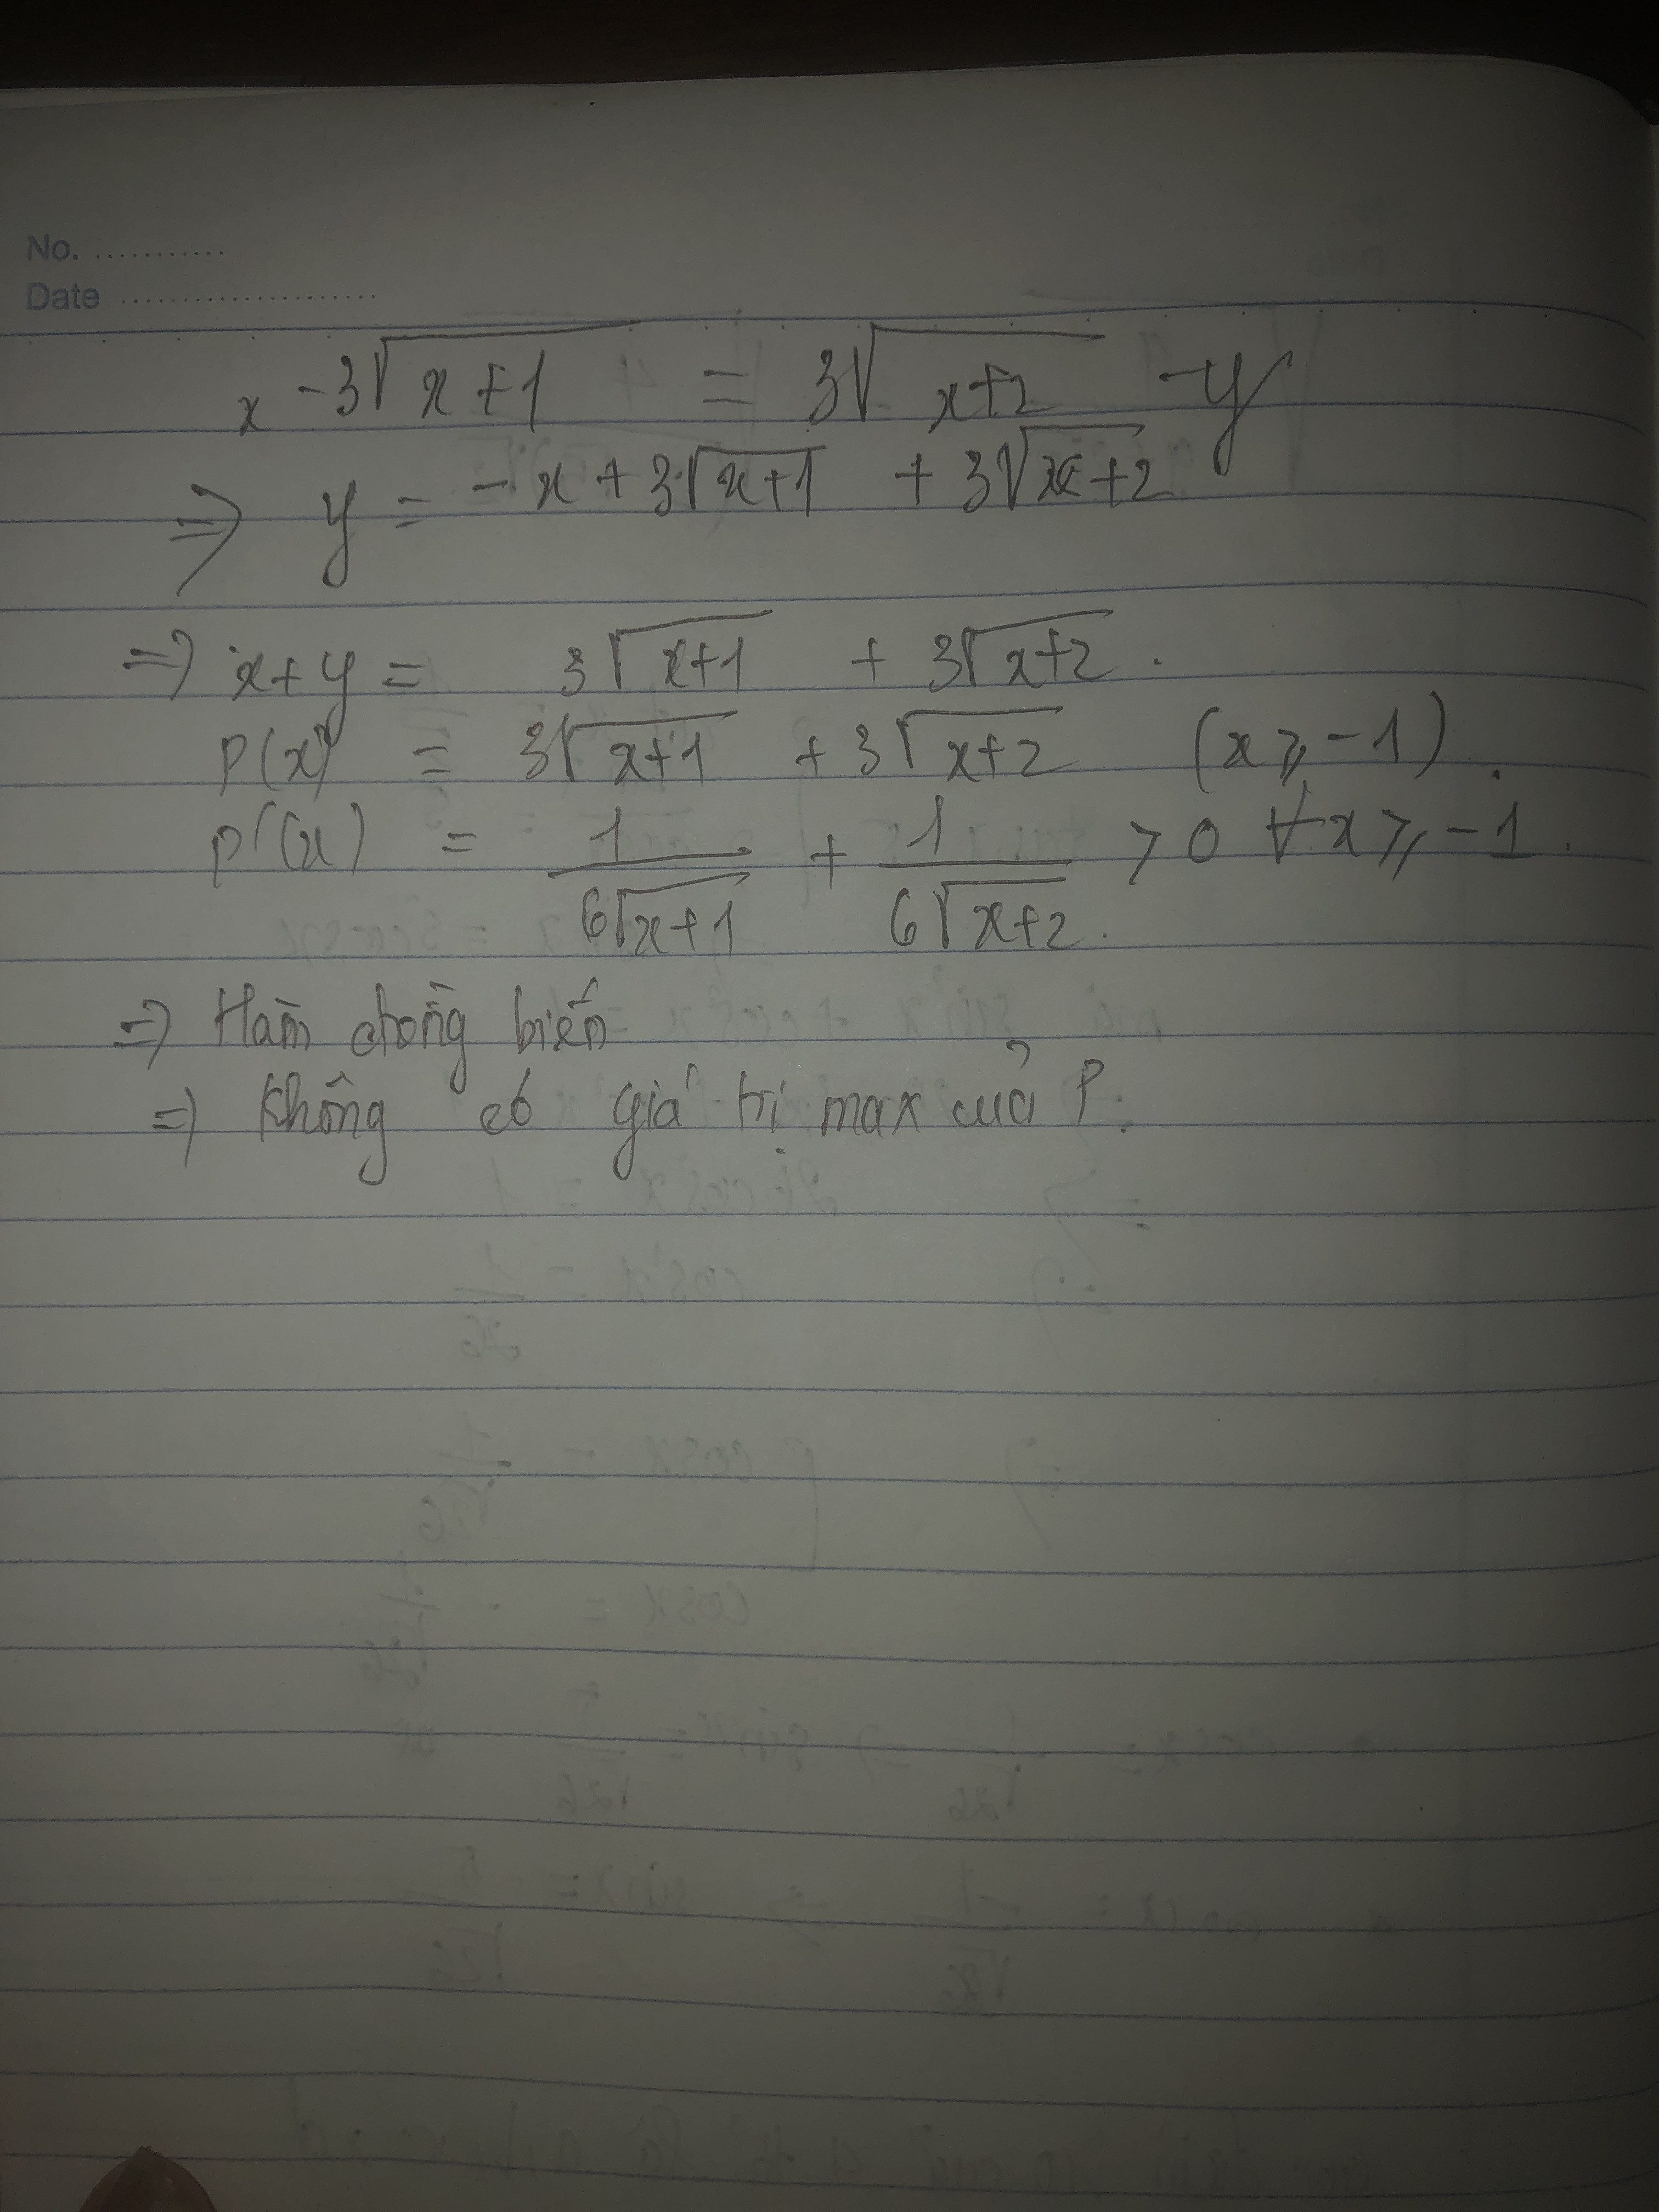 No. ...........
Date .....................
x - 3√(x+1) = 3√(x+2) - y
=> y = -x + 3√(x+1) + 3√(x+2)
=> x+y = 3√(x+1) + 3√(x+2).
P(x) = 3√(x+1) + 3√(x+2) (x ⩾ -1).
P'(x) = 1/(6√(x+1)) + 1/(6√(x+2)) > 0 ∀x ⩾ -1.
=> Hàm đồng biến
=> Không có giá trị max của P.